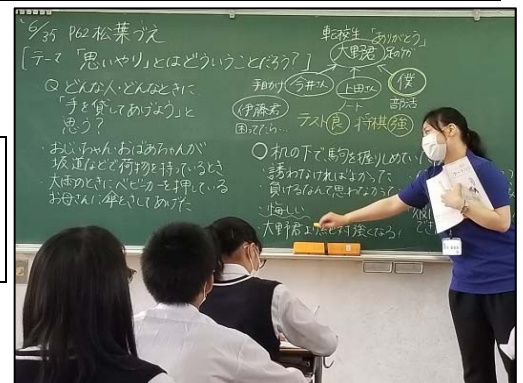 6/35 P62 松葉づえ
[テーマ 「思いやり」とはどういうことだろう?]
Q どんな人・どんなときに
「手を貸してあげよう」と
思う?
・おじいちゃん・おばあちゃんが
坂道などで荷物を持っているとき
・大雨のときにベビーカーを押している
お母さんに傘をさしてあげた
転校生「ありがとう」
大野君 足のケガ
手助け 今井さん 上田さん 僕
ノート 部活
伊藤君
困ってたら…
テスト良 将棋強
○机の下で、駒を握りしめてい
・誘わなければよかった
・負けるなんて思わなかった
悔しい
・大野君より絶対強くなる!